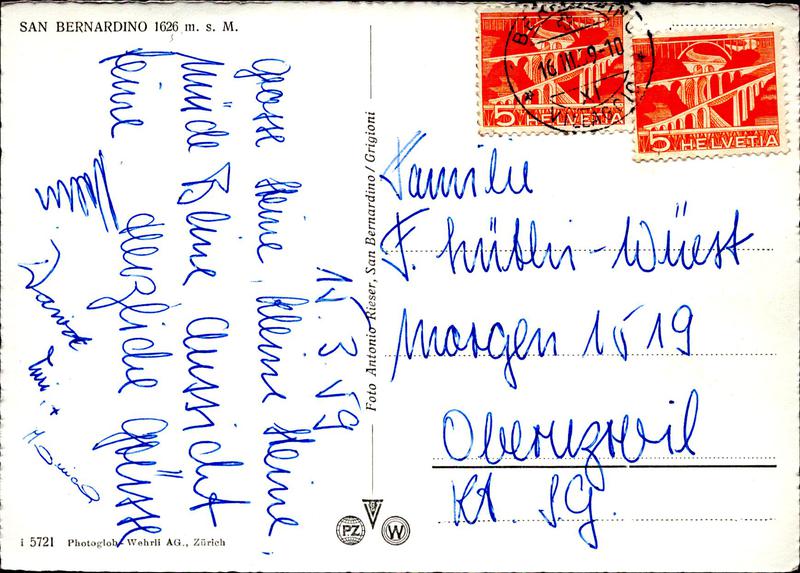 SAN BERNARDINO 1626 m. s. M.
15. 3. 59
Grosse Steine, kleine Steine.
Müde Beine Aussicht
keine Herzliche Grüsse
Foto Antonio Rieser, San Bernardino / Grigioni
16.III. 9-10
XI
5 HELVETIA
5 HELVETIA
Familie
F. - Wüest
Morgen 1519
Oberuzwil
Kt. S.G.
i 5721 Photoglob-Wehrli AG., Zürich
PZ W